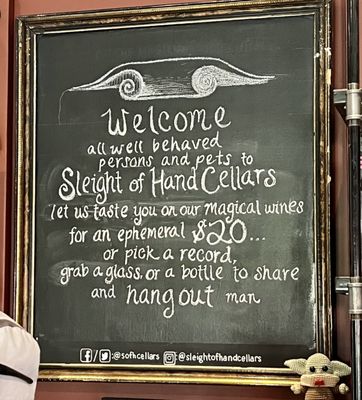 Welcome
all well behaved
persons and pets to
Sleight of Hand Cellars
let us taste you on our magical wines
for an ephemeral $20...
or pick a record,
grab a glass, or a bottle to share
and hang out man
:@sofhcellars :@sleightofhandcellars